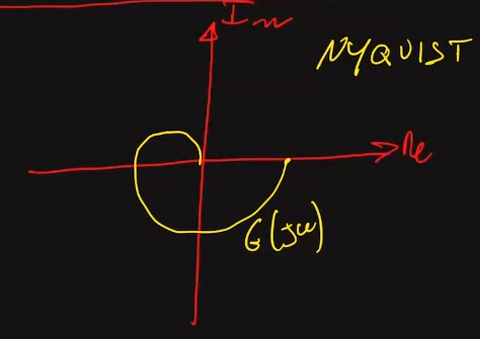 Im
NYQUIST
Re
G(jω)